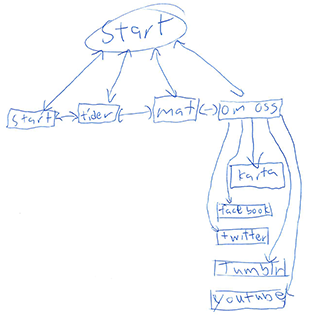 Start
start
tider
mat
om oss
karta
facebook
twitter
Tumblr
youtube